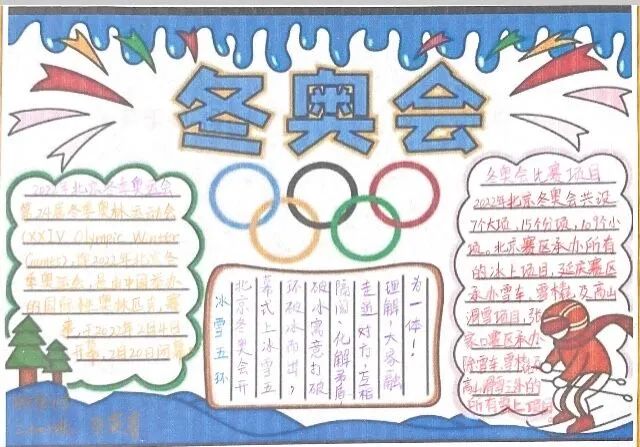 冬奥会
2022年北京冬季奥运会
第24届冬季奥林匹克运动会
(XXIV Olympic Winter
Games), 即2022年北京冬
季奥运会, 是由中国举办
的国际性奥林匹克赛
事, 于2022年2月4日
开幕, 2月20日闭幕
冰雪五环
北京冬奥会开
幕式上冰雪五
环破冰而出,
破冰寓意打破
隔阂、化解矛盾
走近对方, 互相
理解, 大家融
为一体!
冬奥会比赛项目
2022年北京冬奥会共设
7个大项, 15个分项, 109个小
项。北京赛区承办所有
的冰上项目, 延庆赛区
承办雪车, 雪橇, 及高山
滑雪项目, 张
家口赛区承办
除雪车, 雪橇及
高山滑雪外的
所有雪上项目